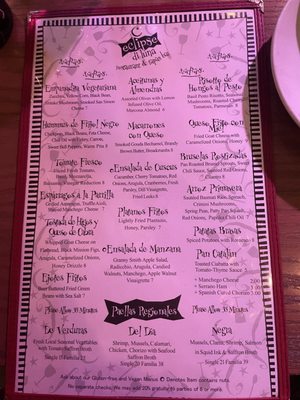 eclipse
di luna
restaurant & tapas bar
Tapas
Tapas
Empanadita Vegetariana
Smoke Mushroom, Smoked San Simon
Cheese 7
Hummus de Frijol Negro
Black Beans, Feta Cheese,
Sweet Bell Peppers, Warm Pita 8
Tomate Fresco
Sliced Fresh Tomato,
Basil, Mozzarella,
Balsamic Vinegar Reduction 8
Esparragos a la Parrilla
Grilled Asparagus, Truffle Aioli,
Tostada de Higos y
Queso de Cabra
Whipped Goat Cheese on
Flatbread, Black Mission Figs,
Arugula, Caramelized Onions,
Honey Drizzle 8
Ejotes Fritos
Beer Battered Fried Green
Beans with Sea Salt 7
Aceitunas y
Almendras
Assorted Olives with Lemon
Infused Olive Oil,
Marcona Almonds 6
Macarrones
con Queso
Smoked Gouda Bechamel, Brandy
Brown Butter, Breadcrumbs 8
Ensalada de Cuscus
Red Onions, Arugula, Cranberries, Fresh
Parsley, Dill Vinaigrette,
Platanos Fritos
Lightly Fried Plantains,
Honey, Parsley 7
Ensalada de Manzana
Granny Smith Apple Salad,
Radicchio, Arugula, Candied
Walnuts, Manchego, Apple Walnut
Vinaigrette 7
Risotto de
Hongos al Pesto
Basil Pesto Risotto, Roasted
Mushrooms, Roasted Cherry
Tomatoes, Parmesan 8
Queso Frito con
Miel
Fried Goat Cheese with
Caramelized Onions, Honey
Bruselas Rostizadas
Pan Roasted Brussel Sprouts, Sweet
Chili Sauce, Smoked Red Onions,
Arroz Primavera
Sauteed Basmati Rice, Spinach,
Crimini Mushrooms,
Spring Peas, Patty Pan Squash,
Red Onions, Paprika Chili Oil
Patatas Bravas
Spiced Potatoes with Romesco
Pan Catalan
Toasted Ciabatta with
Tomato-Thyme Sauce 5
+ Manchego Cheese
+ Serrano Ham
+ Spanish Cured Chorizo
Please Allow 35 Minutes
Paellas Regionales
Please Allow 35 Minutes
De Verduras
Fresh Local Seasonal Vegetables
with Tomato Saffron Broth
Single 21 Familia
Del Dia
Shrimp, Mussels, Calamari,
Chicken, Chorizo with Seafood
Saffron Broth
Single 20 Familia 38
Negra
Mussels, Clams, Shrimp, Salmon
in Squid Ink & Saffron Broth
Single 21 Familia 39
Ask about our Gluten-free and Vegan Menus Denotes Item contains nuts.
No separate checks. We may add 20% gratuity to parties of 8 or more.